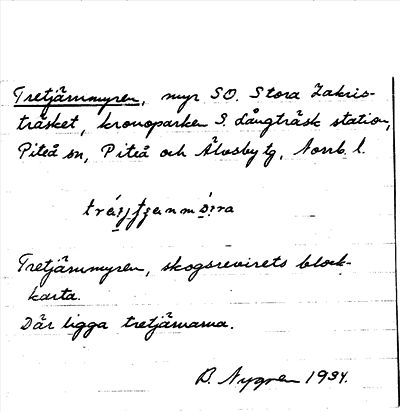 Tretjärnmyren, myr SO. Stora Zakris-
träsket, kronoparken S. Långträsk station,
Piteå sn, Piteå och Älvsby tg, Norrb. l.
Tretjärnmyren, skogsrevirets block-
karta.
Där ligga tretjärnarna.
B. Nygren 1934.